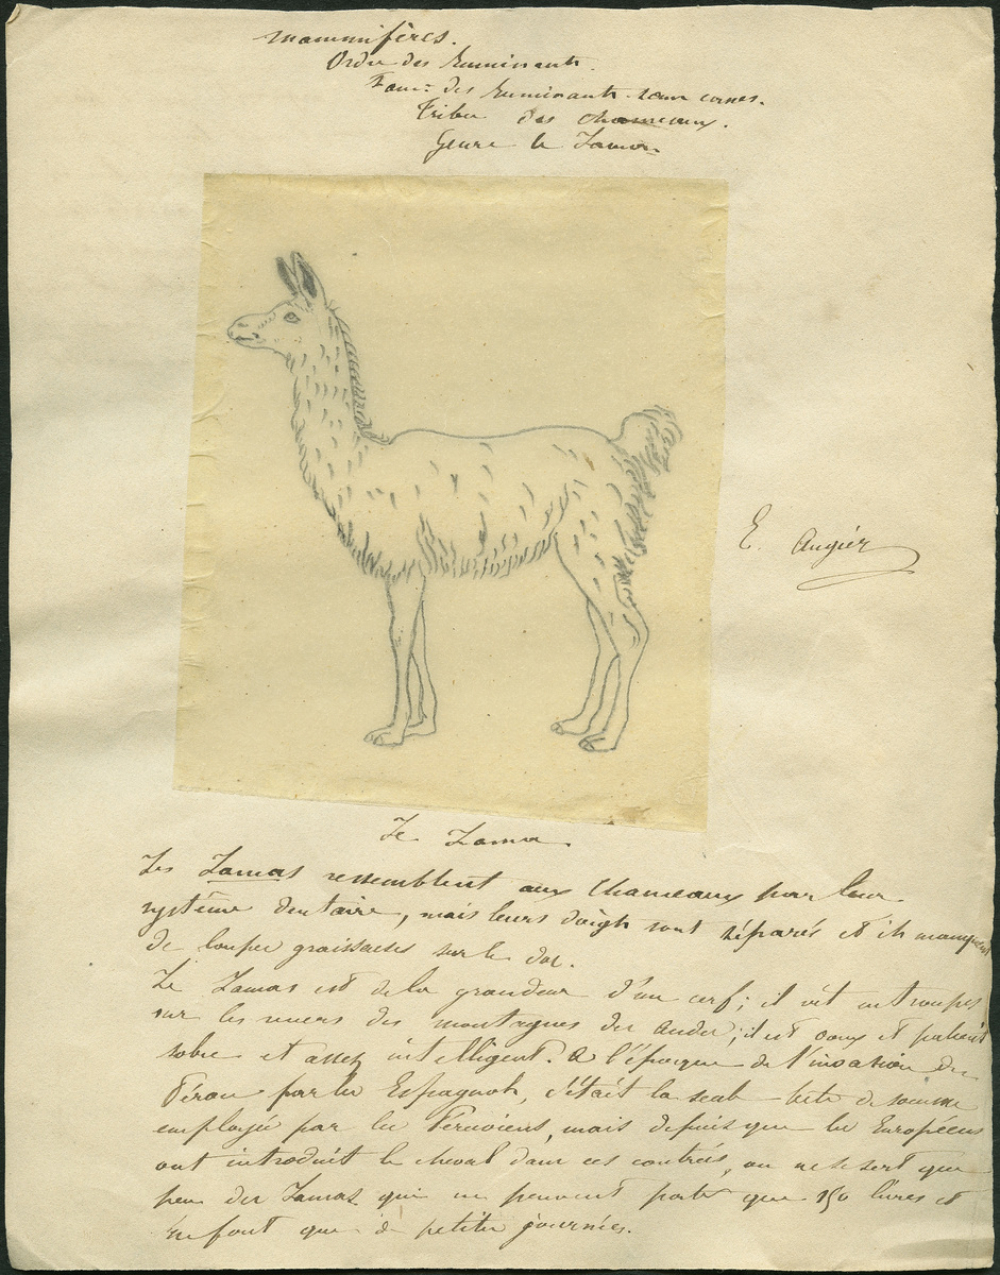 Mammifères.
Ordre des Ruminants.
Fam: des Ruminants sans cornes.
Tribu des chameaux.
Genre le Lama
E. Augier
Le Lama
Les Lamas ressemblent aux Chameaux par leur
système dentaire, mais leurs doigts sont séparés et ils manquent
de loupes graisseuses sur le dos.
Le Lamas est de la grandeur d'un cerf; il vit en troupes
sur les revers des montagnes des Andes; il est doux et patient
sobre et assez intelligent. A l'époque de l'invasion du
Pérou par les Espagnols, c'était la seule bête de somme
employée par les Péruviens, mais depuis que les Européens
ont introduit le cheval dans ces contrées, on ne se sert que
peu des Lamas qui ne peuvent porter que 150 livres et
ne font que de petites journées.